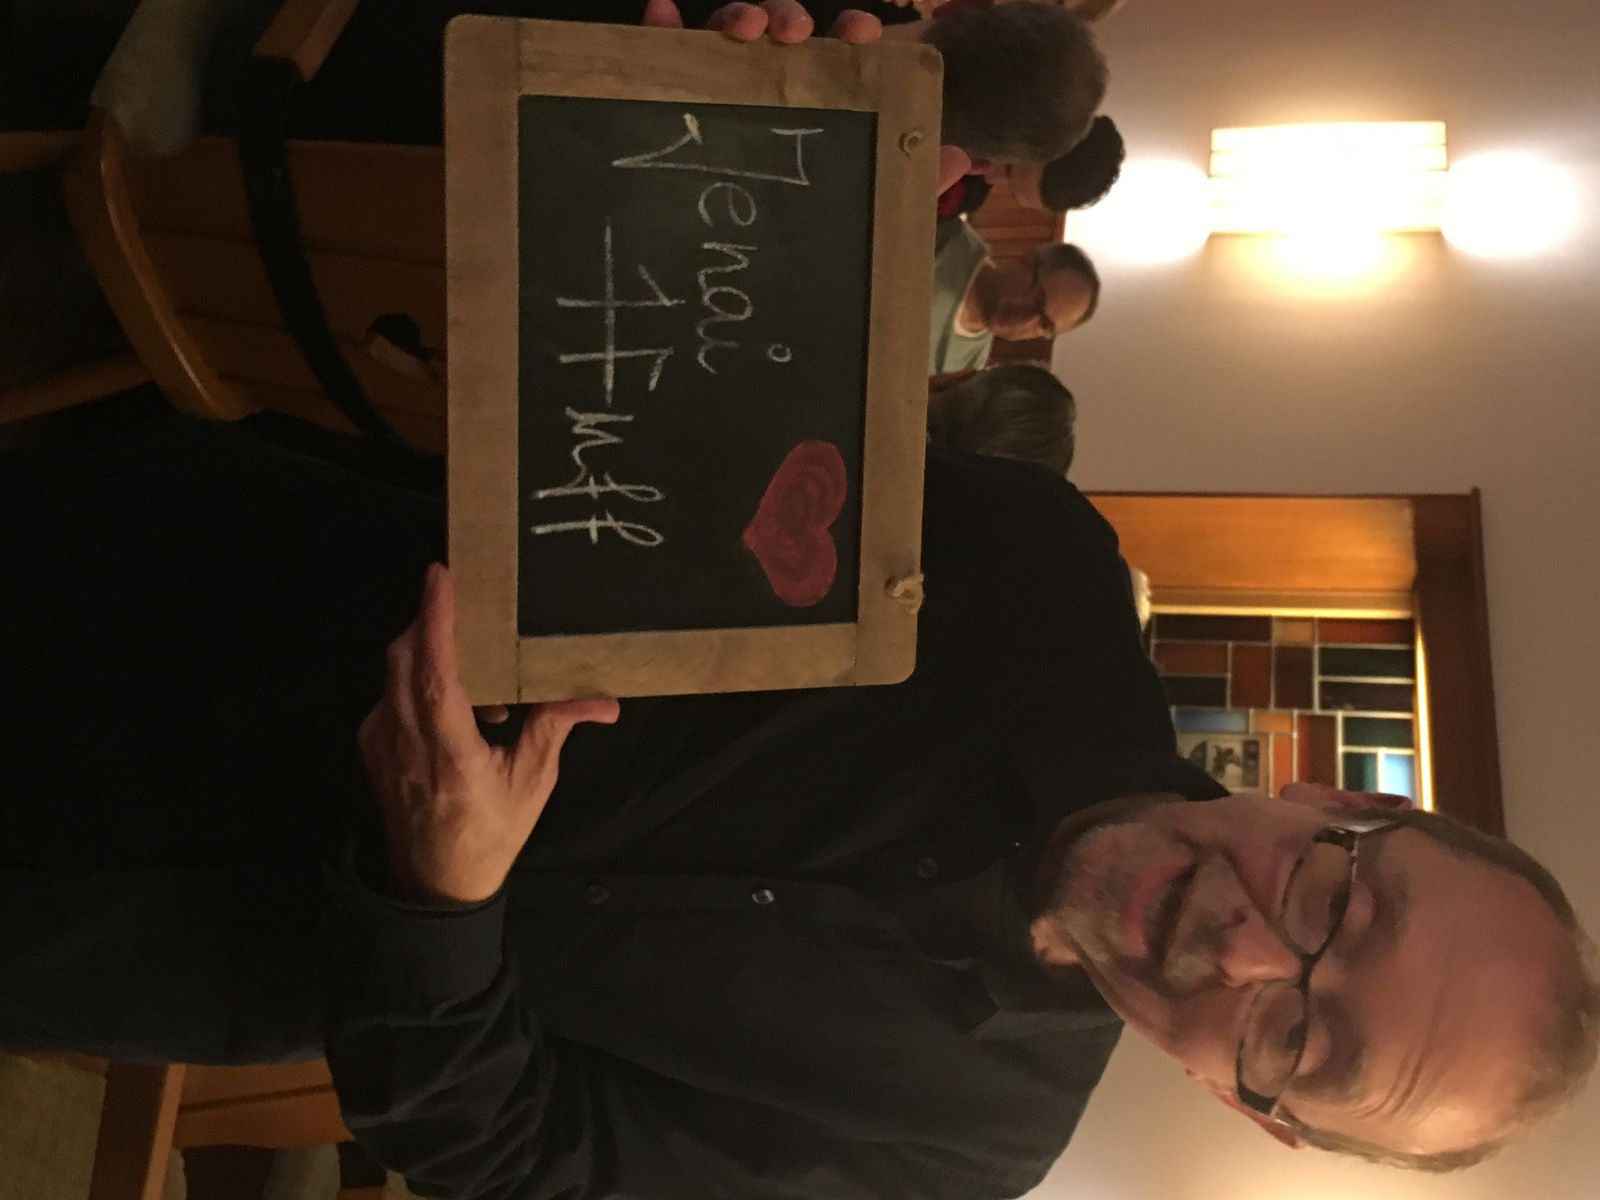 Jenai
Huff